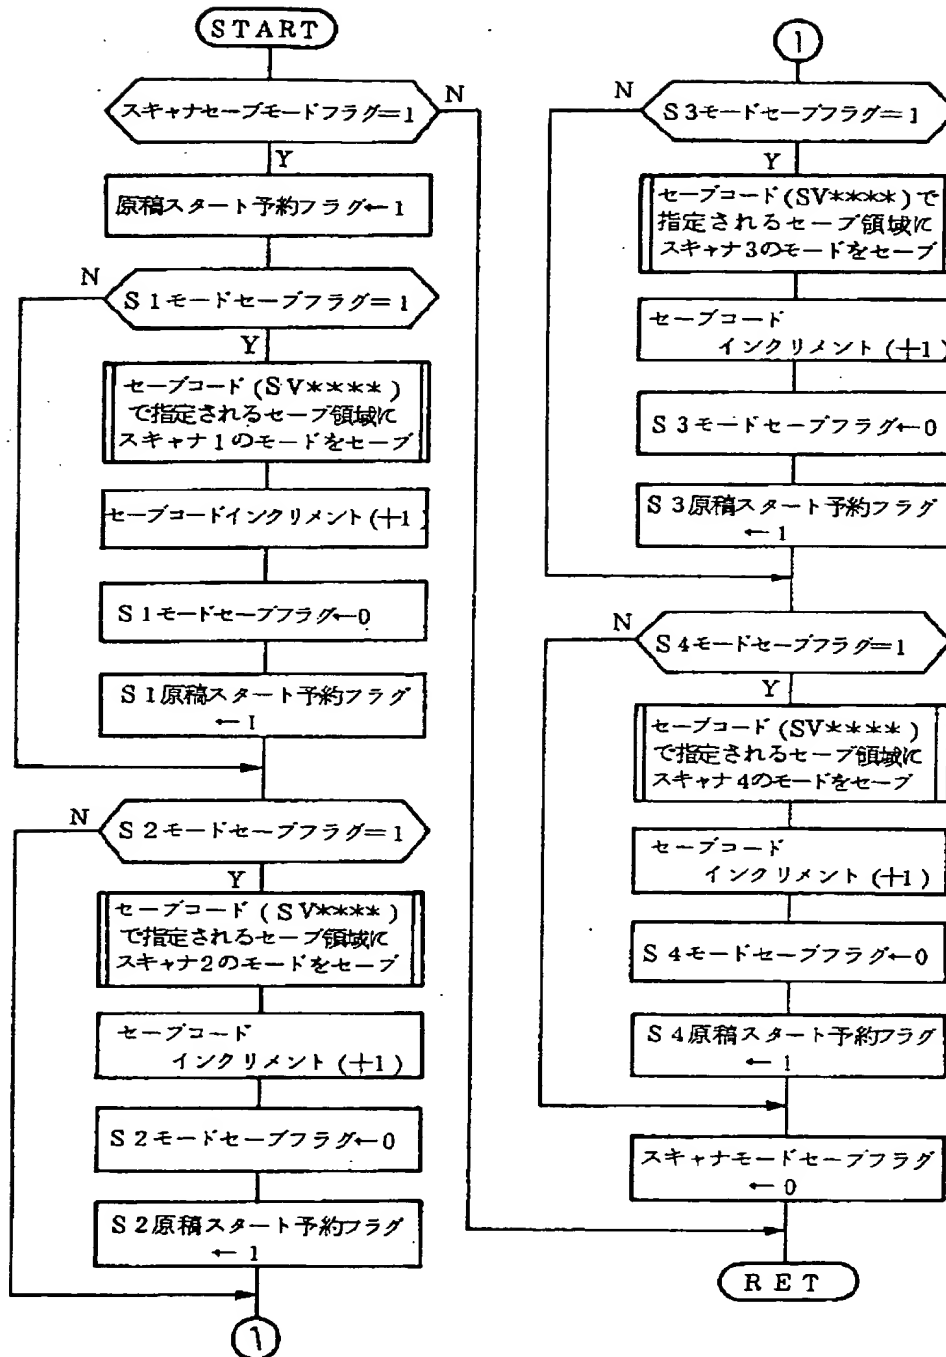 START
スキャナセーブモードフラグ=1
N
Y
原稿スタート予約フラグ←1
N
S1モードセーブフラグ=1
Y
セーブコード(SV****)
で指定されるセーブ領域に
スキャナ1のモードをセーブ
セーブコードインクリメント(+1)
S1モードセーブフラグ←0
S1原稿スタート予約フラグ
←1
N
S2モードセーブフラグ=1
Y
セーブコード(SV****)
で指定されるセーブ領域に
スキャナ2のモードをセーブ
セーブコード
インクリメント(+1)
S2モードセーブフラグ←0
S2原稿スタート予約フラグ
←1
1
1
N
S3モードセーブフラグ=1
Y
セーブコード(SV****)で
指定されるセーブ領域に
スキャナ3のモードをセーブ
セーブコード
インクリメント(+1)
S3モードセーブフラグ←0
S3原稿スタート予約フラグ
←1
N
S4モードセーブフラグ=1
Y
セーブコード(SV****)
で指定されるセーブ領域に
スキャナ4のモードをセーブ
セーブコード
インクリメント(+1)
S4モードセーブフラグ←0
S4原稿スタート予約フラグ
←1
スキャナモードセーブフラグ
←0
RET